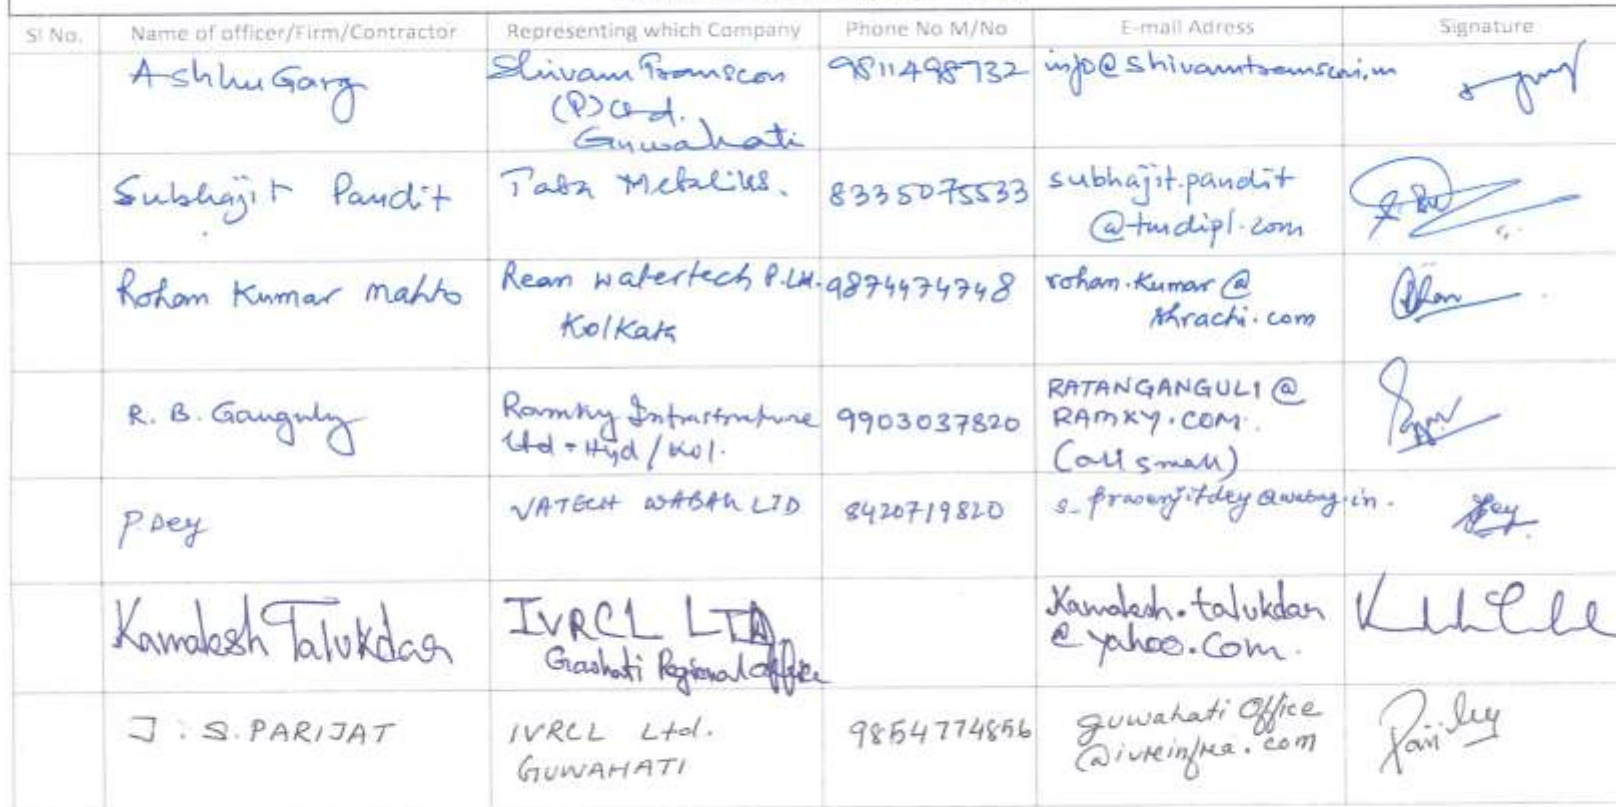 Sl No. Name of officer/Firm/Contractor Representing which Company Phone No M/No E-mail Adress Signature
Ashhu Garg Shivam Transcon 9811498732
(P) Ltd.
Guwahati
Subhajit Pandit Tata Metaliks. 8335075533 subhajit.pandit
@tmdipl.com
Rohan Kumar Mahto Rean watertech P.Ltd. 9874474748 rohan.kumar@
Kolkata shrachi.com
R. B. Ganguly Ramky Infrastructure 9903037820 RATANGANGULI@
Ltd - Hyd / Kol. RAMKY.COM.
(all small)
P Dey VATECH WABAG LTD 8420719820 s_prasenjitdey@wabag.in.
Kamalesh Talukdar IVRCL LTD Kamalesh.talukdar
Regional office @yahoo.com.
J. S. PARIJAT IVRCL Ltd. 9854774856 guwahati Office
GUWAHATI @ivrcinfra.com